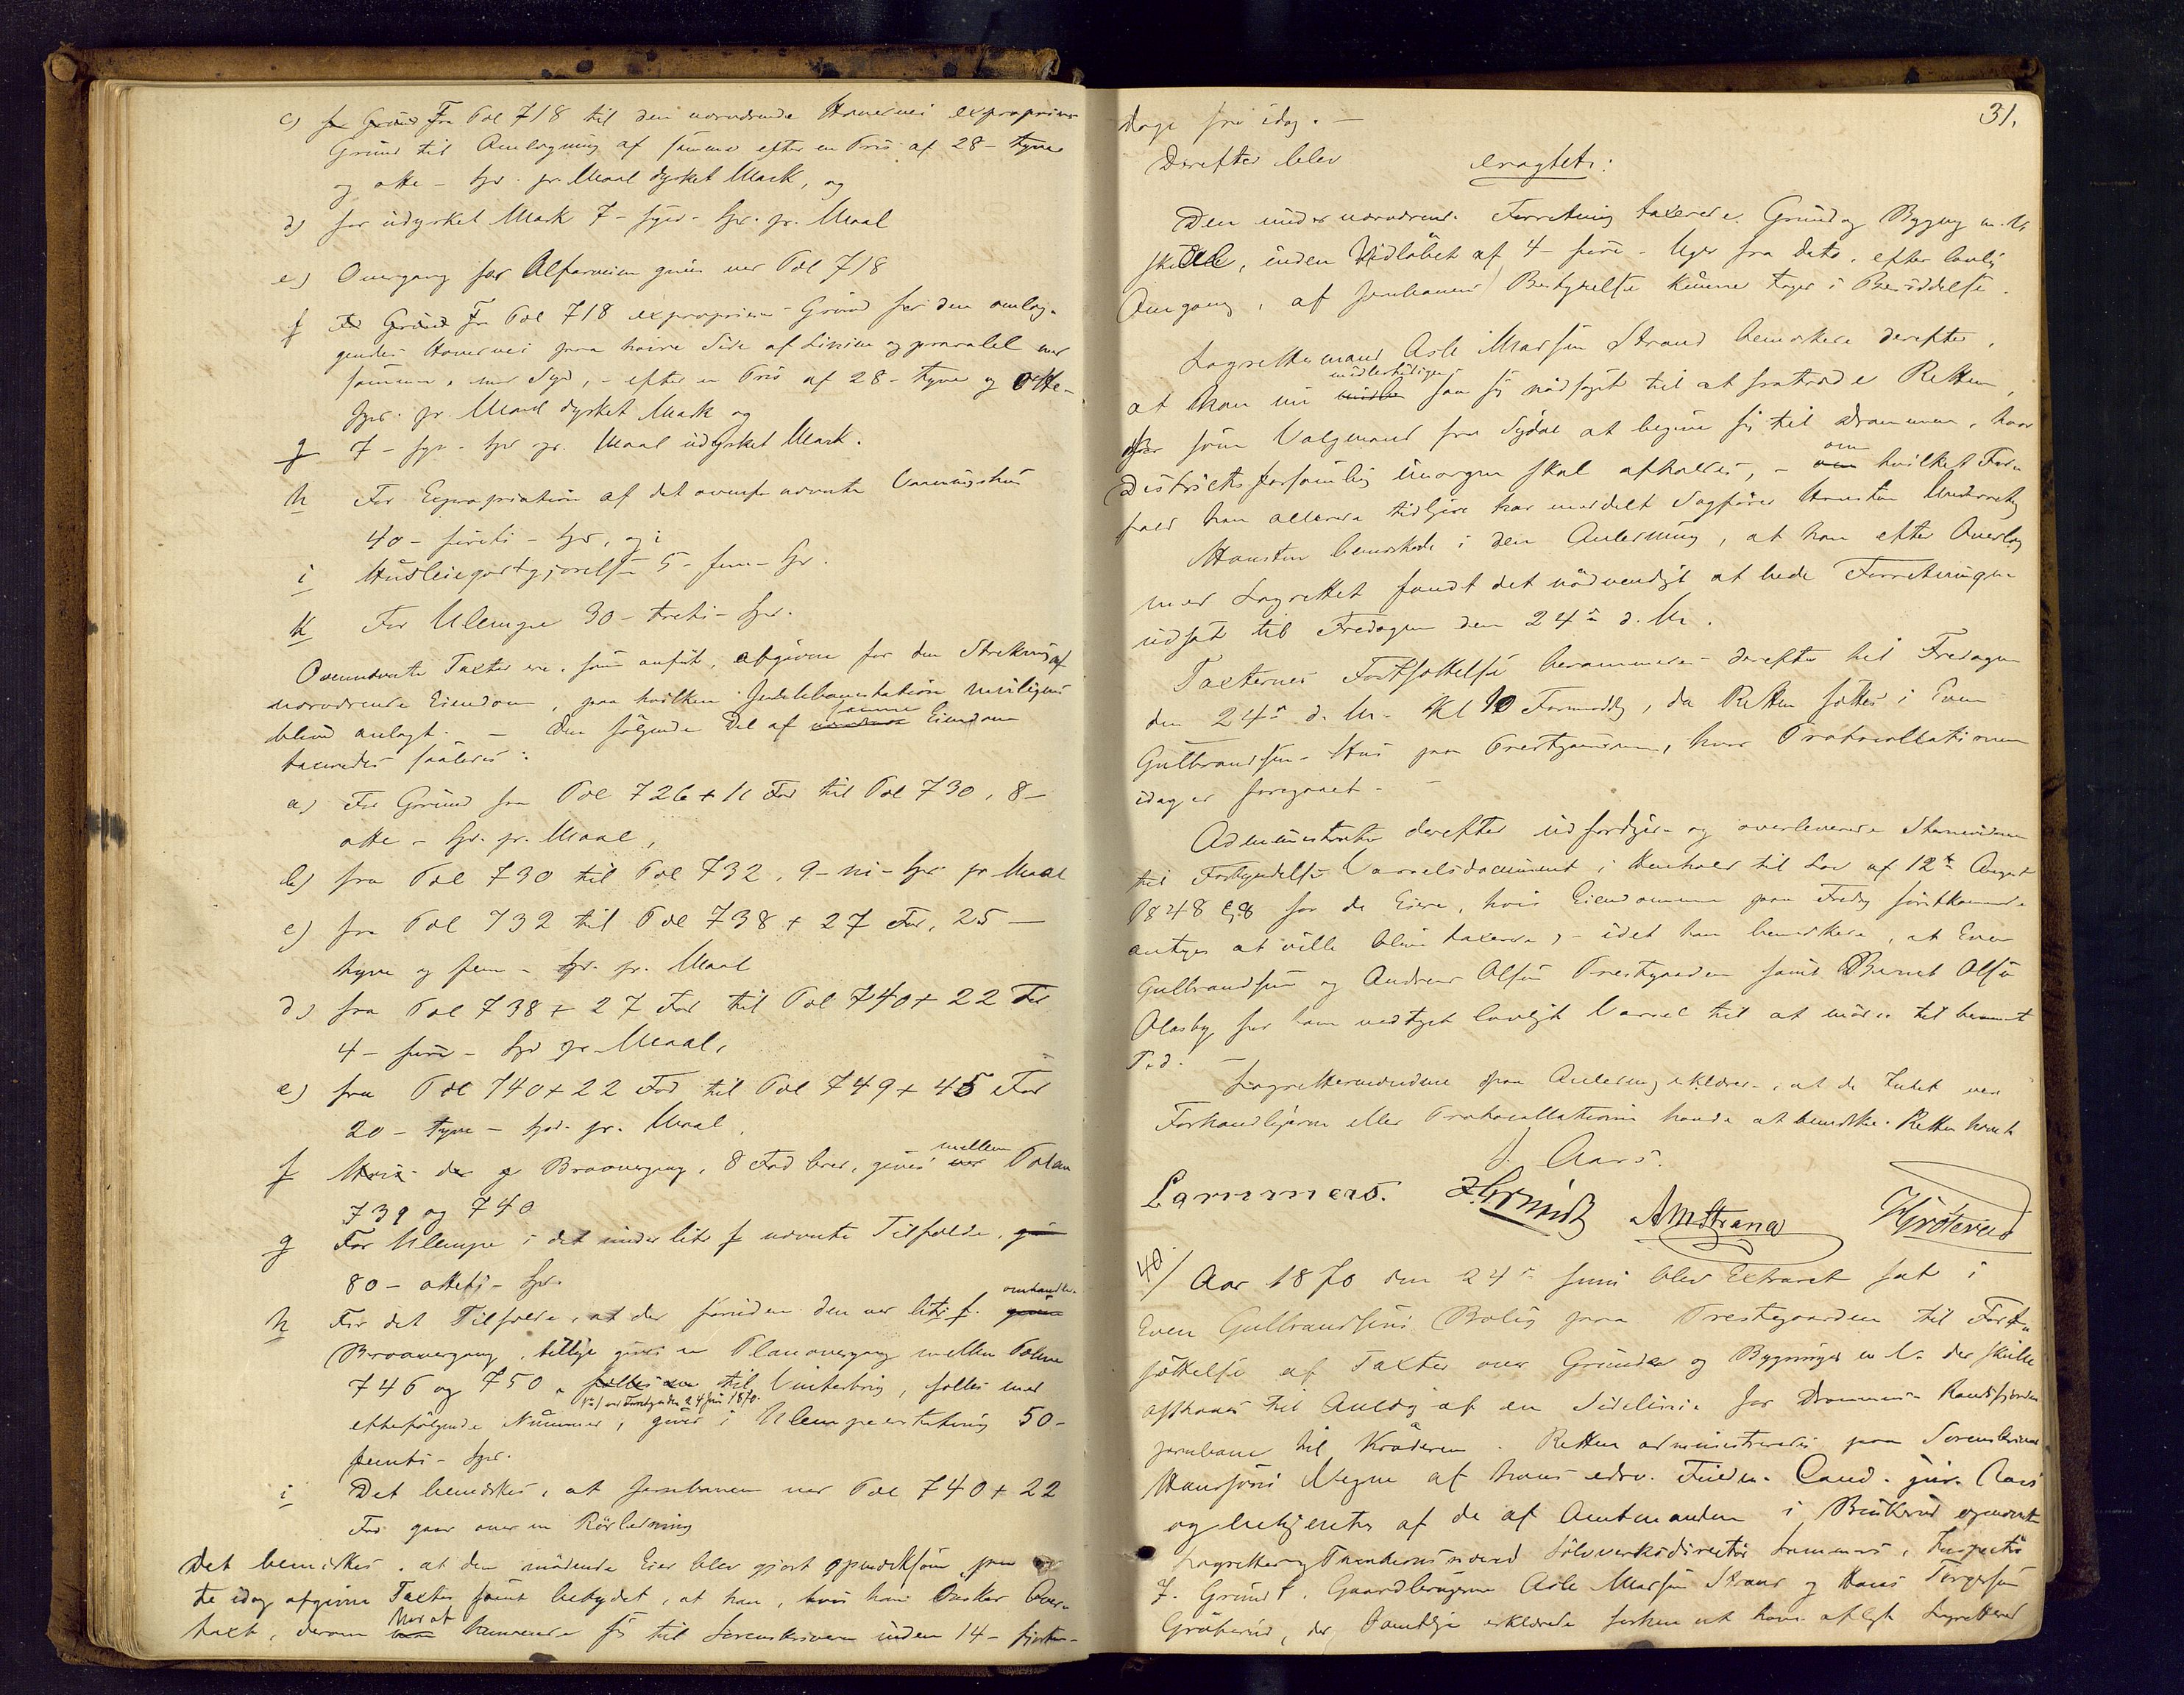 c) Fra Pæl 718 til den nærværende Hovedvei exproprieres
Grund til Omlægning af samme efter en Pris af 28 - tyve
og otte - Spd. pr. Maal dyrket Mark, og
d) for udyrket Mark 7 - syv - Spd. pr. Maal
e) Overgang for Alfarveien gives ved Pæl 718
f Fra Pæl 718 exproprieres Grund for den omlæg-
gendes Hovedvei paa høire Side af Linien og paralel med
samme, mod Syd, - efter en Pris af 28 - tyve og otte -
Spd. pr. Maal dyrket Mark og
g 7 - syv - Spd pr. Maal udyrket Mark.
h For Expropriation af det ovenfor nævnte Vaaningshus
40 - førti - Spd, og i
i Husleiegodtgjørelse 5 - fem - Spd.
k For Ulempe 30 - treti - Spd.
Ovennævnte Taxter ere, som anført, afgivne for den Strækning af
nærværende Eiendom, paa hvilken Jernbanestation muligens
bliver anlagt. - Den følgende Del af samme Eiendom
taxeredes saaledes:
a) For Grund fra Pæl 726 + 11 Fod til Pæl 730, 8 -
otte - Spd. pr. Maal,
b) fra Pæl 730 til Pæl 732, 9 - ni - Spd pr Maal
c) fra Pæl 732 til Pæl 738 + 27 Fod, 25 -
tyve og fem - Spd. pr. Maal
d) fra Pæl 738 + 27 Fod til Pæl 740 + 22 Fod
4 - fire - Spd pr. Maal,
e) fra Pæl 740 + 22 Fod til Pæl 749 + 45 Fod
20 - tyve - Spd. pr. Maal,
f Broovergang, 8 Fod bred, gives mellem Pælene
739 og 740
g For Ulempe i det under litr f nævnte Tilfælde,
80 - otteti - Spd.
h For det Tilfælde, at der foruden den ved litr f. omhandlede
Broovergang, tillige gives en Planovergang mellem Pælene
746 og 750, til Vinterbrug, fælles med
efterfølgende Nummer, gives i Ulempeerstatning 50 -
femti - Spd.
i Det bemærkes, at Jernbanen ved Pæl 740 + 22
Fod gaar over en Rørledning
Det bemærkes, at den mødende Eier blev gjort opmærksom paa
de idag afgivne Taxter samt betydet, at han, hvis han ønsker Over-
taxt, derom har at henvende sig til Sorenskriveren inden 14 - fjorten -
31.
Dage fra idag. -
Derefter blev eragtet:
Den under nærværende Forretning taxerede Grund og Bygning m. V.
skulle, inden Udløbet af 4 - fire - Uger fra Dato, efter lovlig
Omgang, af Jernbanens Bestyrelse kunne tages i Besiddelse.
Lagrettesmand Asle Madsen Strand bemærkede derefter,
at han nu nødsaget til at fratræde Retten,
som Valgmand fra Sigdal at begive sig til Drammen, hvor
Districtsforsamling imorgen skal afholdes, - om hvilket For-
hold han allerede tidligere har meddelt Sagfører Underretning
bemærkede i den Anledning, at han efter Overlæg
med Lagrettet fandt det nødvendigt at bede Forretningen
udsat til Fredagen den 24de d. M.
Taxternes Fortsættelse berammedes derefter til Fredagen
den 24de d. M. Kl 10 Formiddag, da Retten sættes i Even
Gulbrandsens Hus paa Prestegaarden, hvor Protocollationen
idag er foregaaet. -
Administrator derefter udfærdigede og overleverede Stævnevidnerne
til Forkyndelse Varselsdocument i Henhold til Lov af 12te August
1848 § 8 for de Eiere, hvis Eiendomme paa Fredag førstkommende
antages at ville blive taxerede, - idet han bemærkede, at Even
Gulbrandsen og Andreas Olsen Prestegaarden samt Bernt Olsen
Olasby har vedtaget lovligt Varsel til at møde til bemeldt
Tid. -
Lagrettesmændene paa Anledning erklærede, at de Intet ved
Forhandlingerne eller Protocollationen havde at bemærke. Retten hævet
J. Aars.
Lammers. AMStrand
40/ Aar 1870 den 24de Juni blev Extraret sat i
Even Gulbrandsens Bolig paa Prestegaarden til Fort-
sættelse af Taxter over Grunde og Bygninger m. V. der skulle
afstaaes til Anlæg af en Sidelinie for Drammen-Randsfjorden
Jernbane til Krøderen. Retten administreredes paa Sorenskriver
Hansens Vegne af hans edsv. Fuldm. Cand. jur. Aars
og betjentes af de af Amtmanden i Buskerud opnævnte
Lagrettes og Taxationsmænd Sølvverksdirectør Lammers, Inspectør
Gaardbrugerne Asle Madsen Strand og Hans Torgersen
der samtlige erklærede forhen at have aflagt Lagretteed